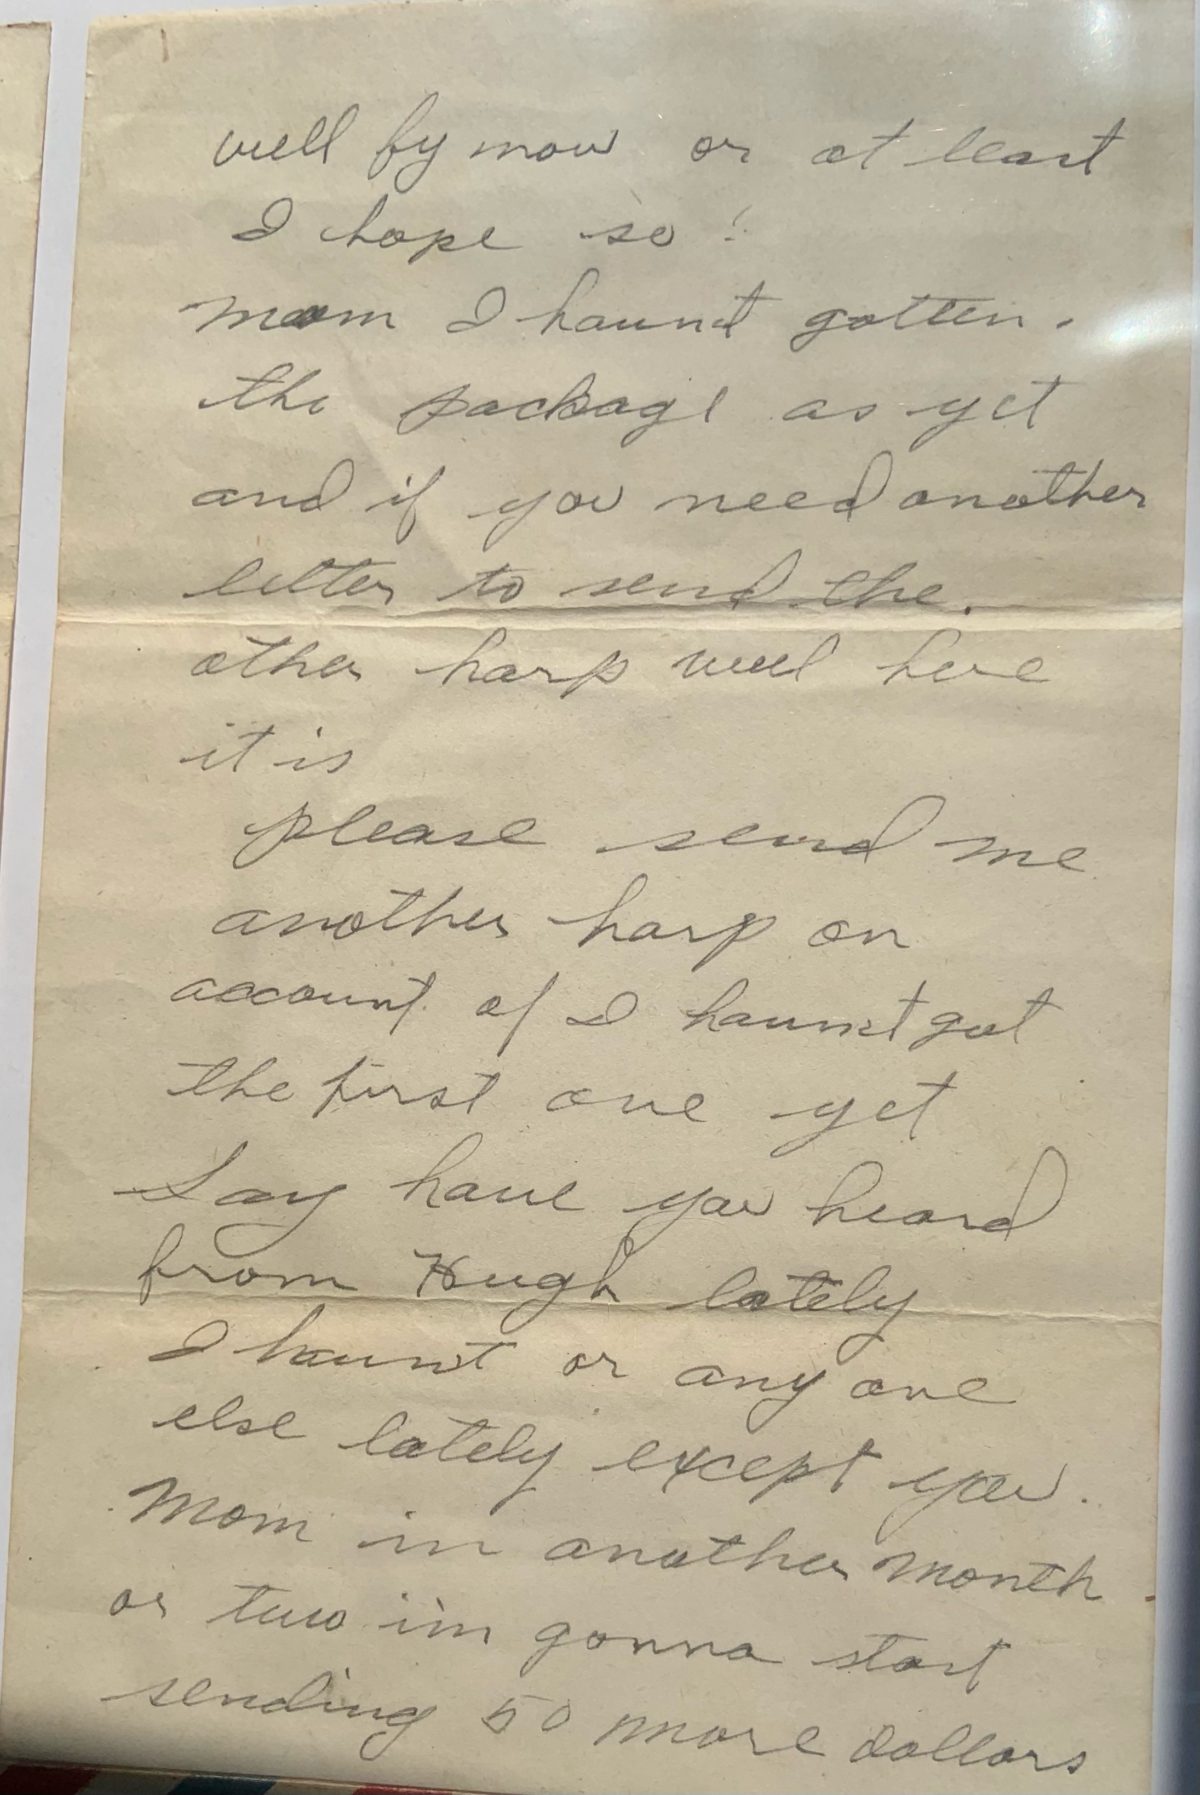 well by now or at least
I hope so!
mom I haven't gotten.
the package as yet
and if you need another
letter to send the.
other harp well here
it is
please send me
another harp on
account of I haven't got
the first one yet
Say have you heard
from Hugh lately
I haven't or any one
else lately except you.
Mom in another month
or two im gonna start
sending 50 more dollars